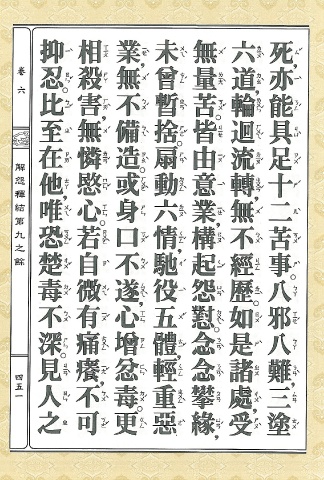 死亦能具足十二苦事。八邪八難，三塗
六道，輪迴流轉，無不經歷。如是諸處，受
無量苦。皆由意業，構起怨懟。念念攀緣，
未曾暫捨。扇動六情，馳役五體。輕重惡
業，無不備造。或身口不遂，心增忿毒。更
相殺害，無憐愍心。若自微有痛癢，不可
抑忍。比至在他，唯恐楚毒不深。見人之
卷六
解怨釋結第九之餘
四五一